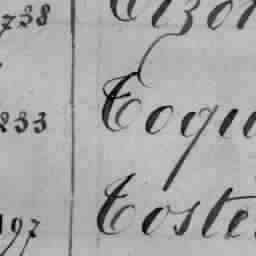 738 Tizon
233 Toqu
197 Toste